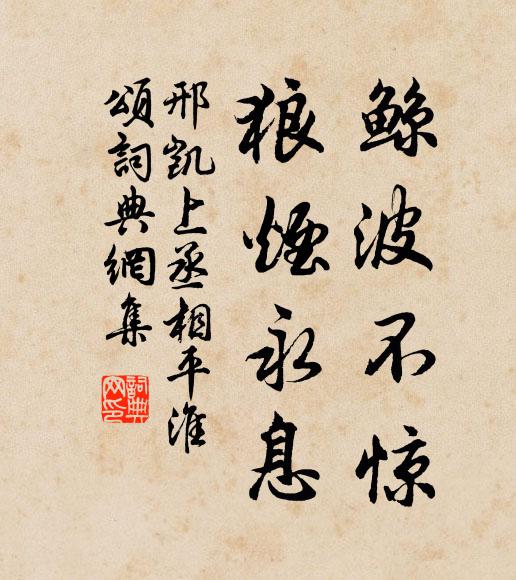 鲸波不惊
狼煙永息
邢凱上丞相平淮
頌詞典網集
詞典网印